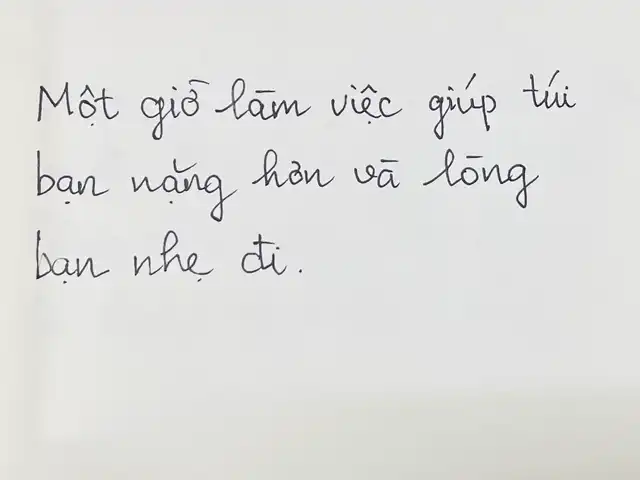 Một giờ làm việc giúp túi
bạn nặng hơn và lòng
bạn nhẹ đi.